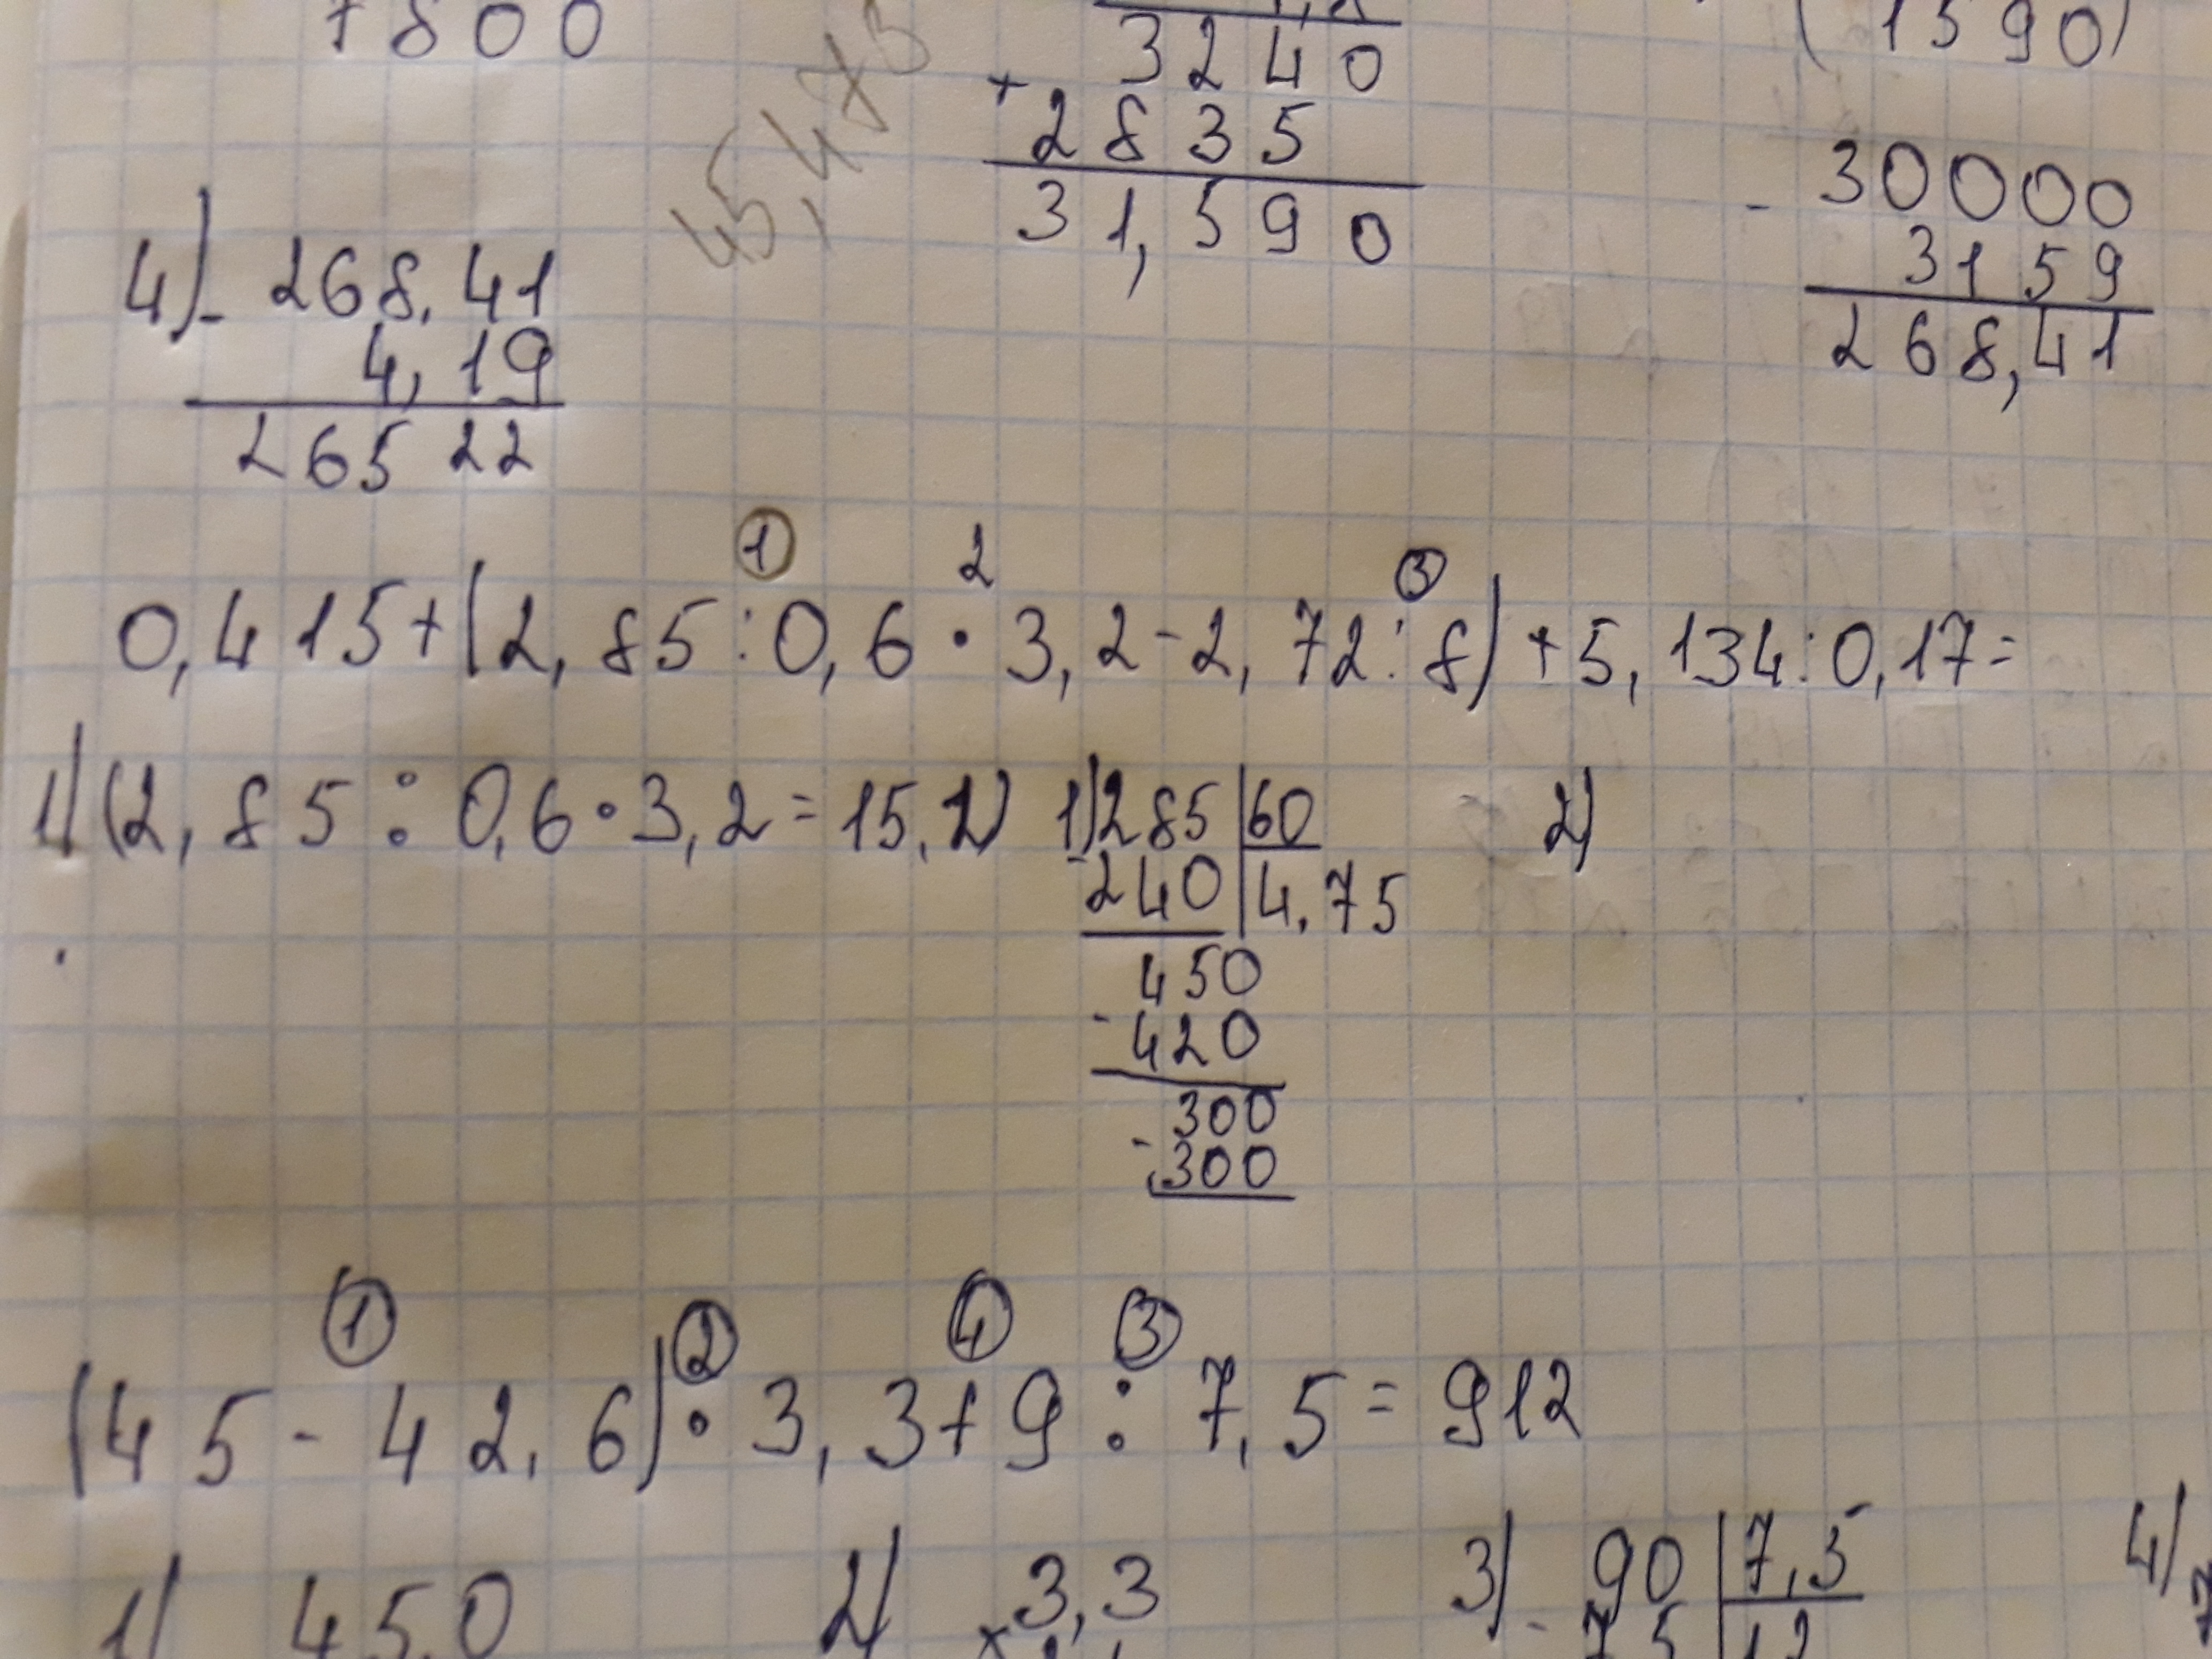 7800
3240
+ 2835
31,590
(1590)
45,473
- 30000
3159
268,41
4) - 268,41
4,19
265 22
1 2 3
0,415+(2,85:0,6·3,2-2,72:8)+5,134:0,17=
1) (2,85:0,6·3,2=15,2) 1) 285 | 60 2)
- 240 | 4,75
450
- 420
300
- 300
1 2 4 3
(45-42,6)·3,3+9:7,5=912
1) 45,0 2) × 3,3 3) - 90 | 7,5 4)
75 | 12